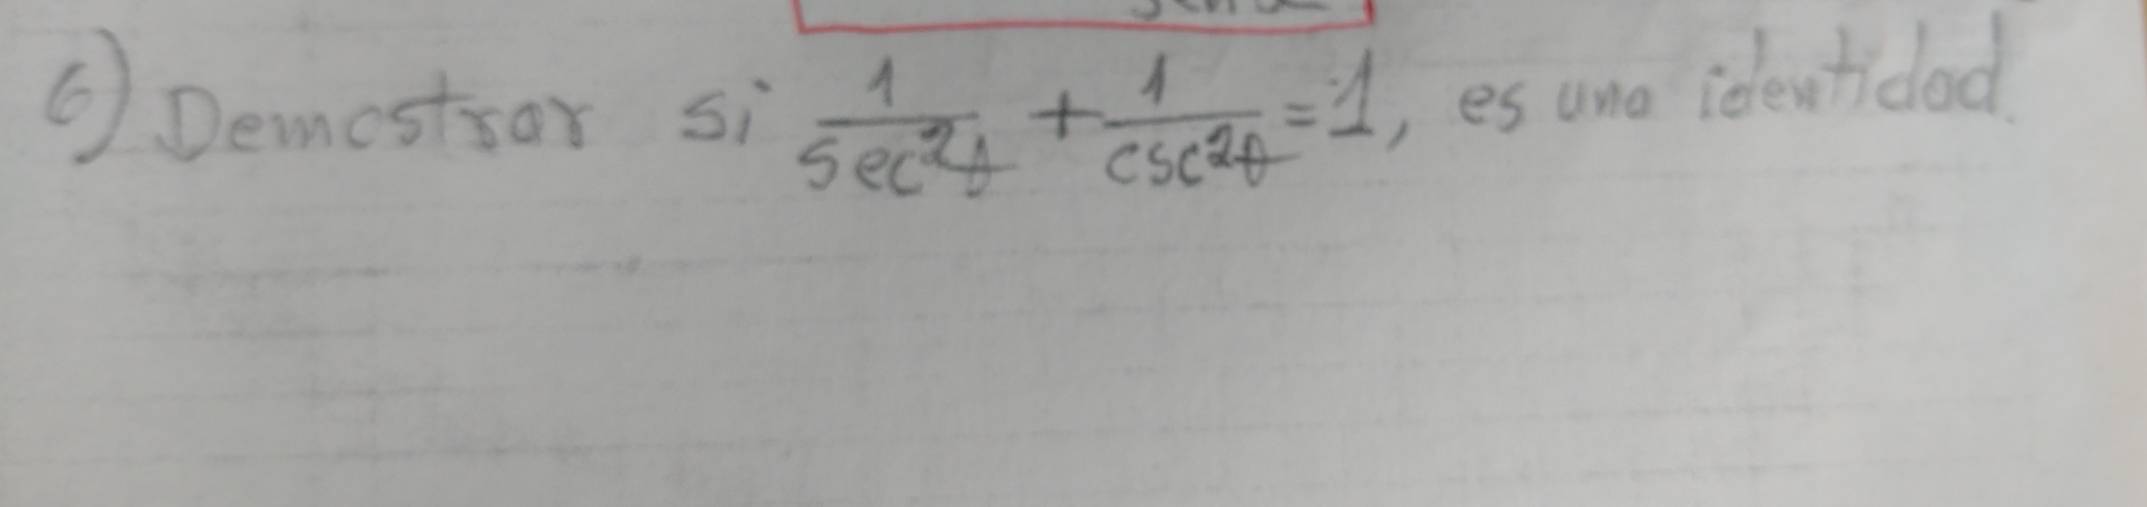 6) Demostrar si 1/sec²θ + 1/csc²θ = 1, es una identidad.